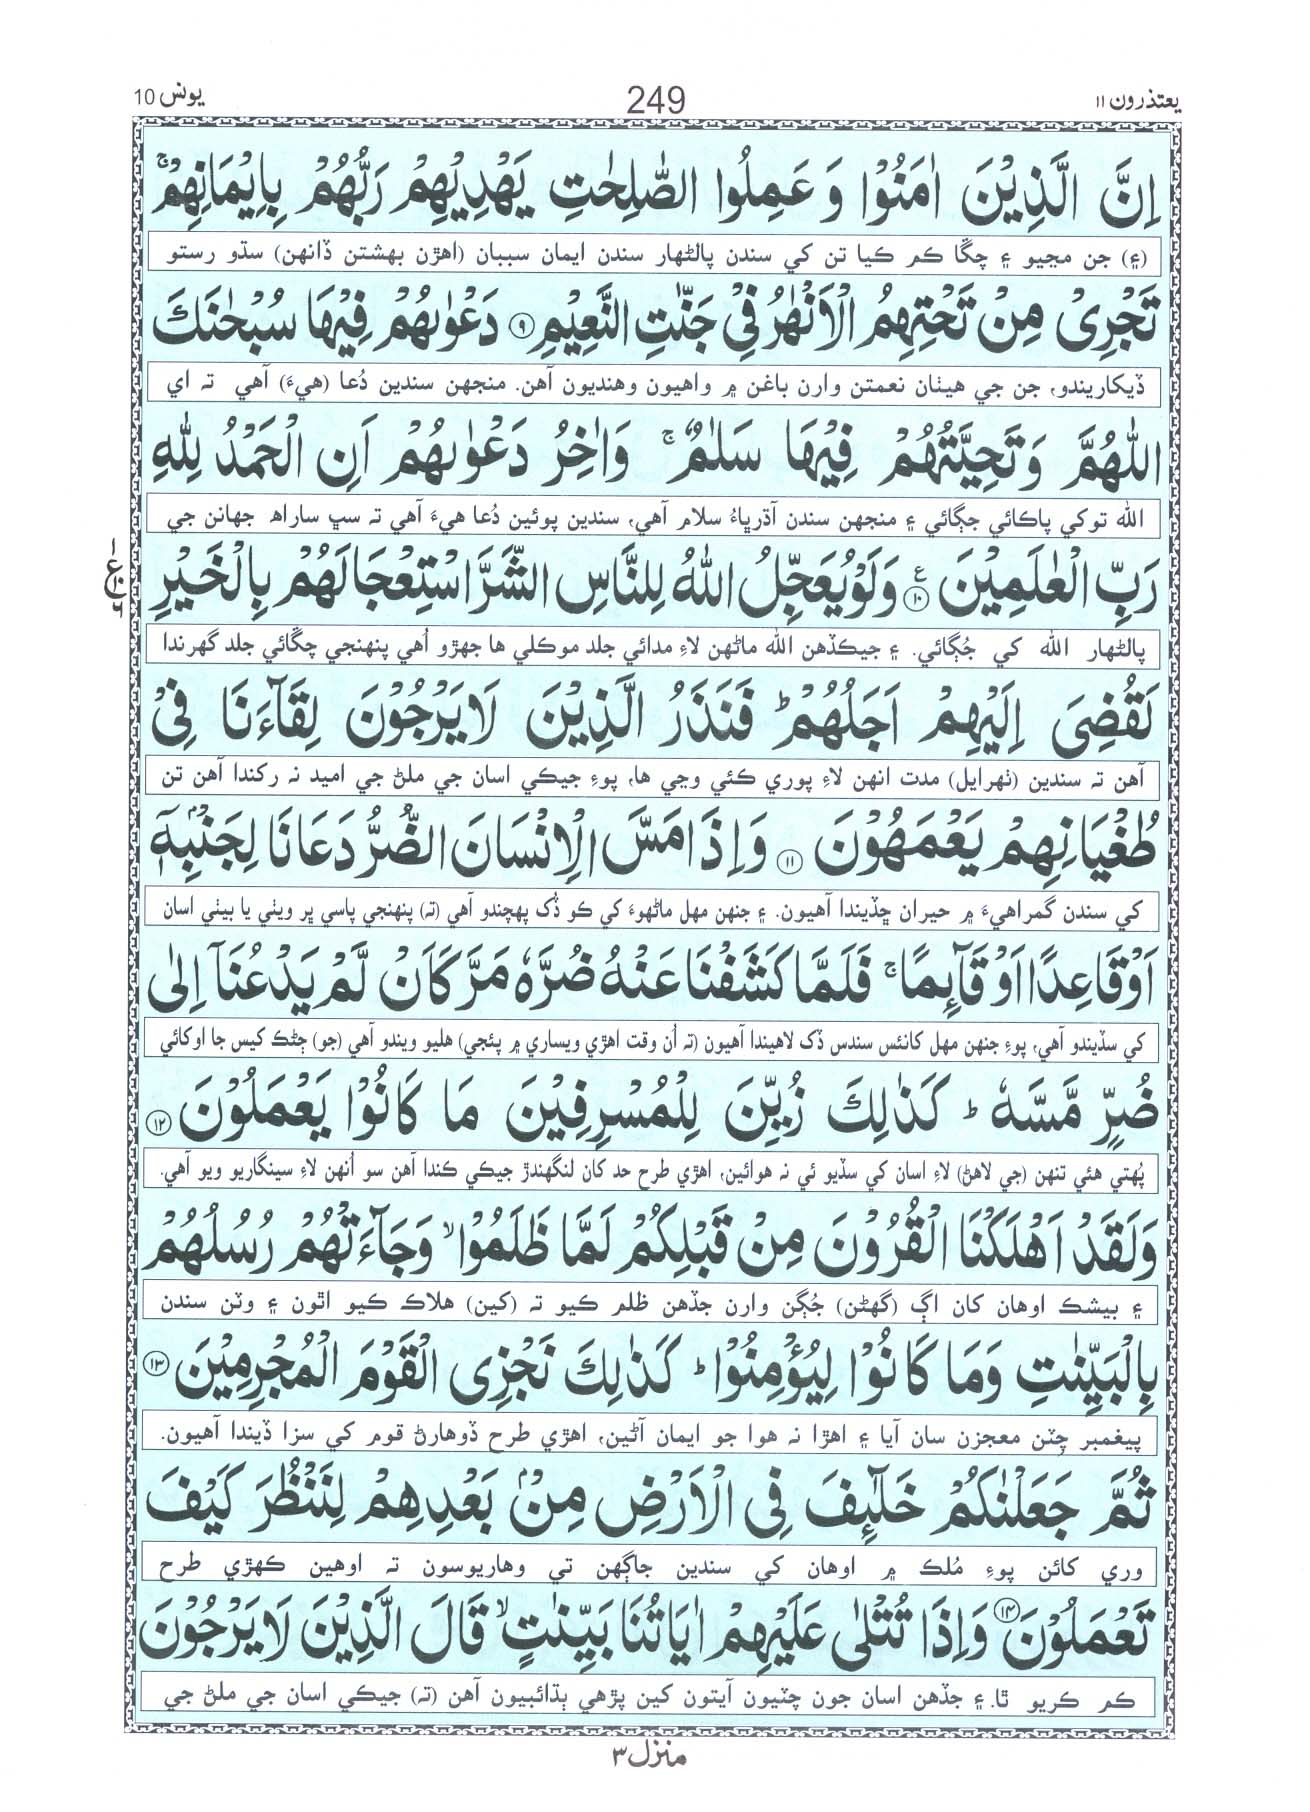 يعتذرون ١١
249
يونس 10
اِنَّ الَّذِيْنَ اٰمَنُوْا وَ عَمِلُوا الصّٰلِحٰتِ يَهْدِيْهِمْ رَبُّهُمْ بِاِيْمَانِهِمْ ۚ
(۽) جن مڃيو ۽ چڱا ڪم ڪيا تن کي سندن پالڻهار سندن ايمان سببان (اهڙن بهشتن ڏانهن) سڌو رستو
تَجْرِىْ مِنْ تَحْتِهِمُ الْاَنْهٰرُ فِىْ جَنّٰتِ النَّعِيْمِ ﴿٩﴾ دَعْوٰىهُمْ فِيْهَا سُبْحٰنَكَ
ڏيکاريندو، جن جي هيٺان نعمتن وارن باغن ۾ واهيون وهنديون آهن. منجهن سندين دُعا (هيءَ) آهي ته اي
اللّٰهُمَّ وَ تَحِيَّتُهُمْ فِيْهَا سَلٰمٌ ۚ وَاٰخِرُ دَعْوٰىهُمْ اَنِ الْحَمْدُ لِلّٰهِ
الله توکي پاڪائي جڳائي ۽ منجهن سندن آڌرڀاءُ سلام آهي، سندين پوئين دُعا هيءَ آهي ته سڀ ساراهه جهانن جي
رَبِّ الْعٰلَمِيْنَ ﴿١٠﴾ ع وَلَوْ يُعَجِّلُ اللّٰهُ لِلنَّاسِ الشَّرَّ اسْتِعْجَالَهُمْ بِالْخَيْرِ
پالڻهار الله کي جُڳائي. ۽ جيڪڏهن الله ماڻهن لاءِ مدائي جلد موڪلي ها جهڙو اُهي پنهنجي چڱائي جلد گهرندا
لَقُضِىَ اِلَيْهِمْ اَجَلُهُمْ ؕ فَنَذَرُ الَّذِيْنَ لَا يَرْجُوْنَ لِقَآءَنَا فِىْ
آهن ته سندين (ٺهرايل) مدت انهن لاءِ پوري ڪئي وڃي ها، پوءِ جيڪي اسان جي ملڻ جي اميد نه رکندا آهن تن
طُغْيَانِهِمْ يَعْمَهُوْنَ ﴿١١﴾ وَاِذَا مَسَّ الْاِنْسَانَ الضُّرُّ دَعَانَا لِجَنْۢبِهٖٓ
کي سندن گمراهيءَ ۾ حيران ڇڏيندا آهيون. ۽ جنهن مهل ماڻهوءَ کي ڪو ڏُک پهچندو آهي (ته) پنهنجي پاسي ڀر ويٺي يا بيٺي اسان
اَوْ قَاعِدًا اَوْ قَآئِمًا ۚ فَلَمَّا كَشَفْنَا عَنْهُ ضُرَّهٗ مَرَّ كَاَنْ لَّمْ يَدْعُنَاۤ اِلٰى
کي سڏيندو آهي، پوءِ جنهن مهل کانئس سندس ڏک لاهيندا آهيون (ته اُن وقت اهڙي ويساري ۾ پئجي) هليو ويندو آهي (جو) ڄڻڪ کيس جا اوکائي
ضُرٍّ مَّسَّهٗ ؕ كَذٰلِكَ زُيِّنَ لِلْمُسْرِفِيْنَ مَا كَانُوْا يَعْمَلُوْنَ ﴿١٢﴾
پُهتي هئي تنهن (جي لاهڻ) لاءِ اسان کي سڏيو ئي نه هوائين، اهڙي طرح حد کان لنگهندڙ جيڪي ڪندا آهن سو اُنهن لاءِ سينگاريو ويو آهي.
وَلَقَدْ اَهْلَكْنَا الْقُرُوْنَ مِنْ قَبْلِكُمْ لَمَّا ظَلَمُوْا ۙ وَجَآءَتْهُمْ رُسُلُهُمْ
۽ بيشڪ اوهان کان اڳ (گهڻن) جُڳن وارن جڏهن ظلم ڪيو ته (کين) هلاڪ ڪيو اٿون ۽ وٽن سندن
بِالْبَيِّنٰتِ وَمَا كَانُوْا لِيُؤْمِنُوْا ؕ كَذٰلِكَ نَجْزِى الْقَوْمَ الْمُجْرِمِيْنَ ﴿١٣﴾
پيغمبر چِٽن معجزن سان آيا ۽ اهڙا نه هوا جو ايمان آڻين، اهڙي طرح ڏوهارڻ قوم کي سزا ڏيندا آهيون.
ثُمَّ جَعَلْنٰكُمْ خَلٰٓئِفَ فِى الْاَرْضِ مِنْۢ بَعْدِهِمْ لِنَنْظُرَ كَيْفَ
وري کائن پوءِ مُلڪ ۾ اوهان کي سندين جاڳهن تي وهاريوسون ته اوهين ڪهڙي طرح
تَعْمَلُوْنَ ﴿١٤﴾ وَاِذَا تُتْلٰى عَلَيْهِمْ اٰيَاتُنَا بَيِّنٰتٍ ۙ قَالَ الَّذِيْنَ لَا يَرْجُوْنَ
ڪم ڪريو ٿا. ۽ جڏهن اسان جون چٽيون آيتون کين پڙهي ٻڌائبيون آهن (ته) جيڪي اسان جي ملڻ جي
منزل ٣